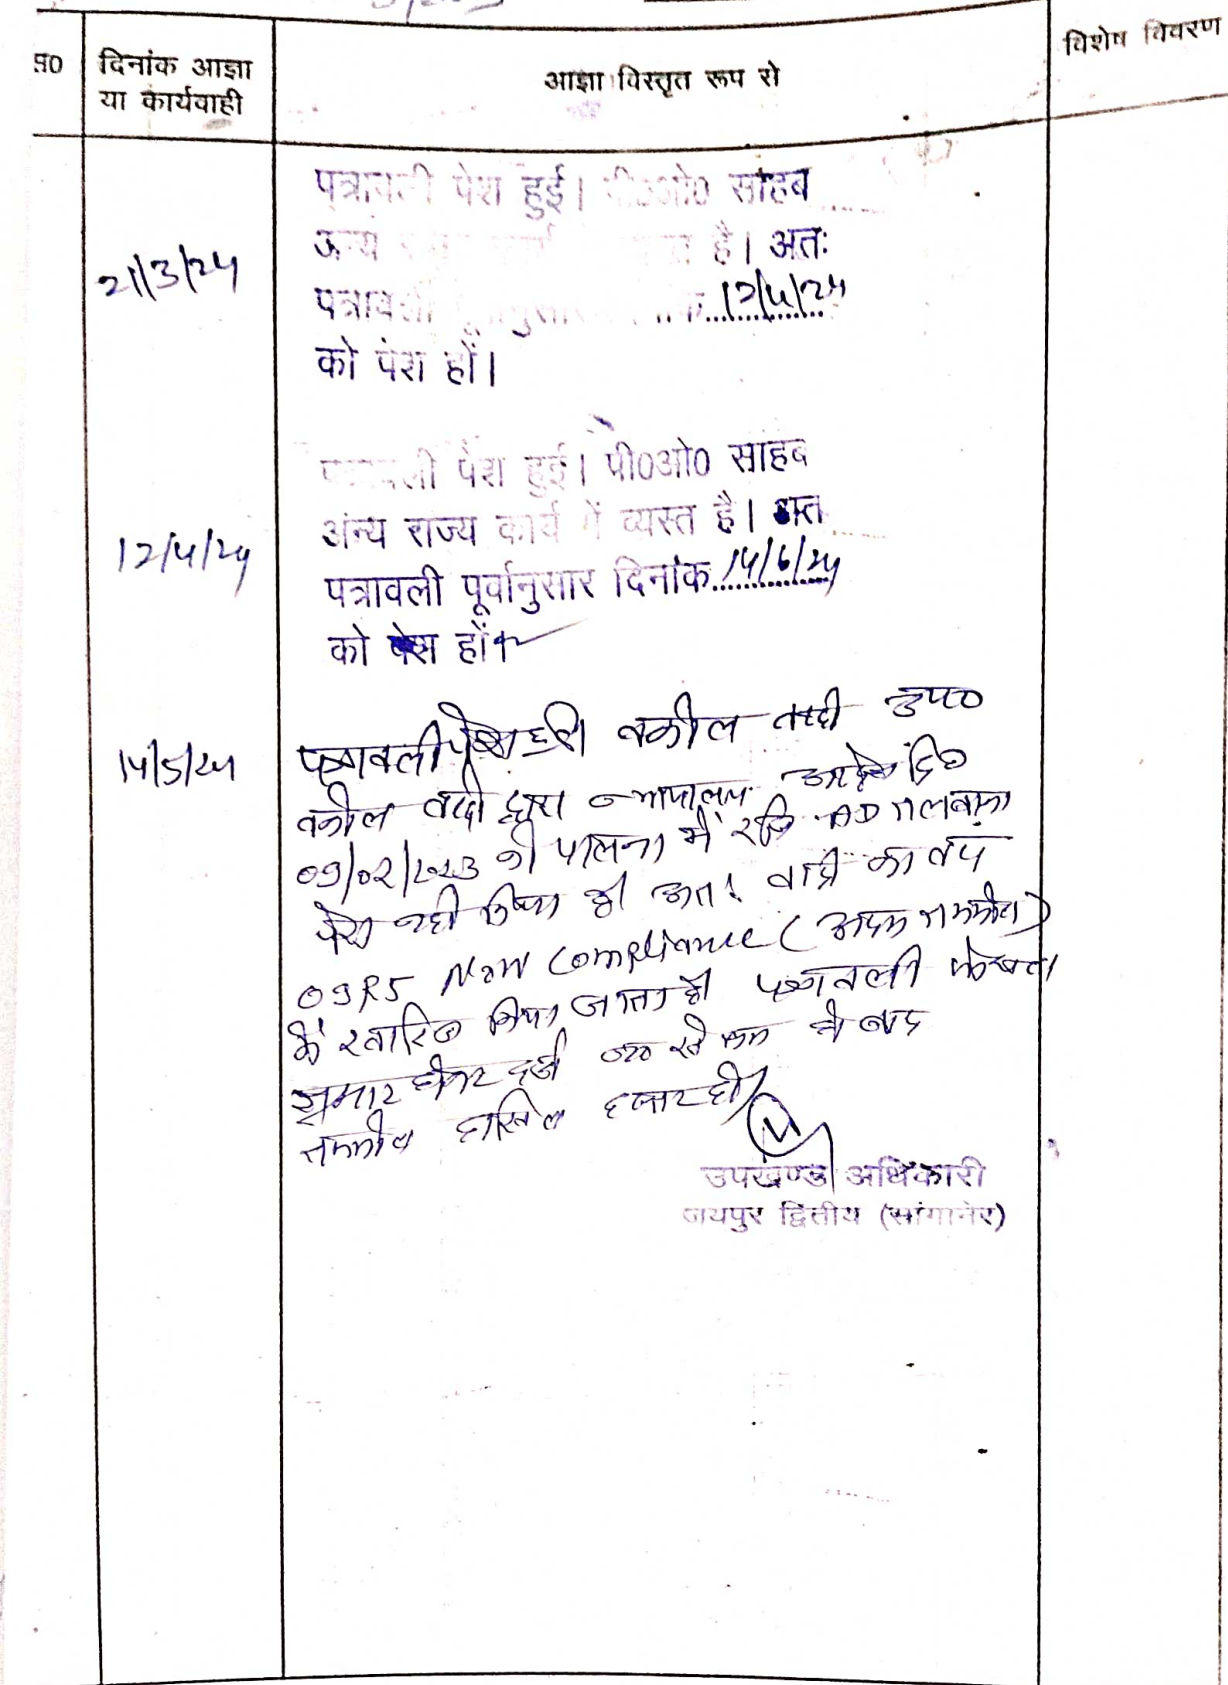 स0 दिनांक आज्ञा या कार्यवाही आज्ञा विस्तृत रूप से विशेष विवरण
पत्रावली पेश हुई। पी0ओ0 साहब
अन्य है। अतः
21/3/24 पत्रावली 12/4/24
को पेश हों।
पत्रावली पेश हुई। पी0ओ0 साहब
अन्य राज्य कार्य में व्यस्त है। अत
12/4/24 पत्रावली पूर्वानुसार दिनांक 14/6/24
को पेश हों
14/5/24 पत्रावली पेश हुई। वकील वादी उप०
वकील वादी द्वारा न्यायालय आदेश दि०
09/02/2023 की पालना में रजि AD तलबाना
पेश नही किया है। अतः वादी का वाद
O9R5 Non Compliance (अदम तामील)
में खारिज किया जाता है। पत्रावली फैसल
शुमार होकर दर्ज से कम के बाद
तकमील दाखिल दफ्तर हो।
उपखण्ड अधिकारी
जयपुर द्वितीय (सांगानेर)